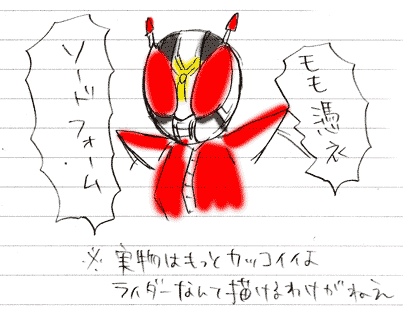 モモ憑依
ソードフォーム
※ 実物はもっとカッコイイよ
ライダーなんて描けるわけがねえ